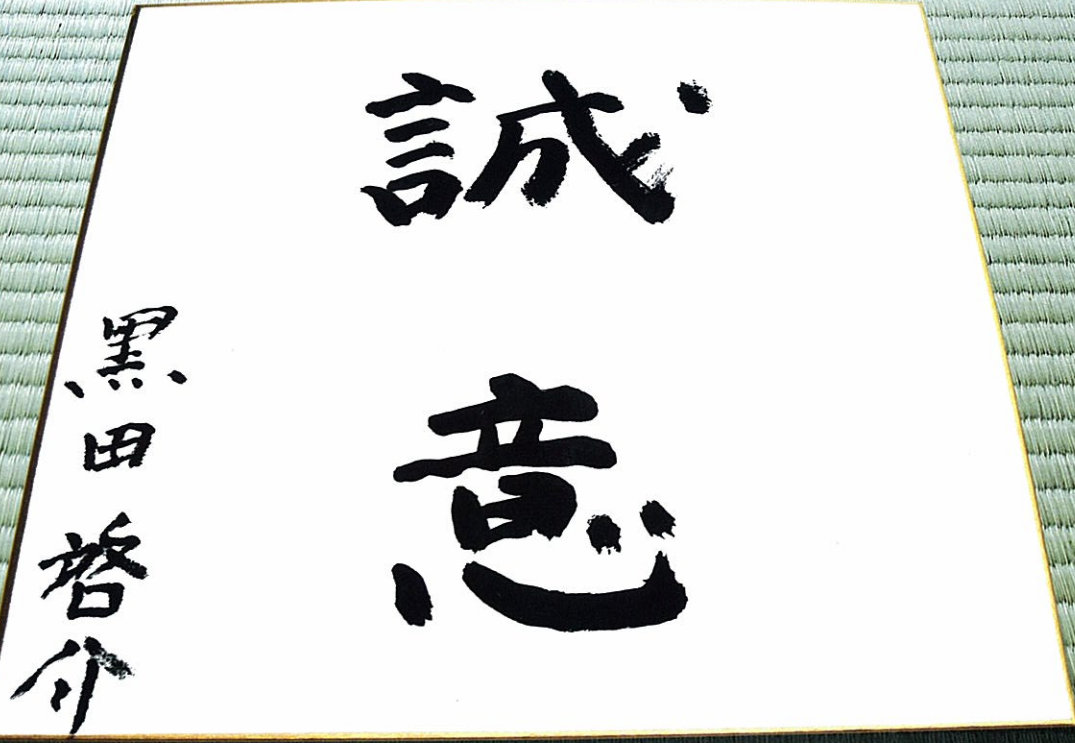 誠意
黒田啓介